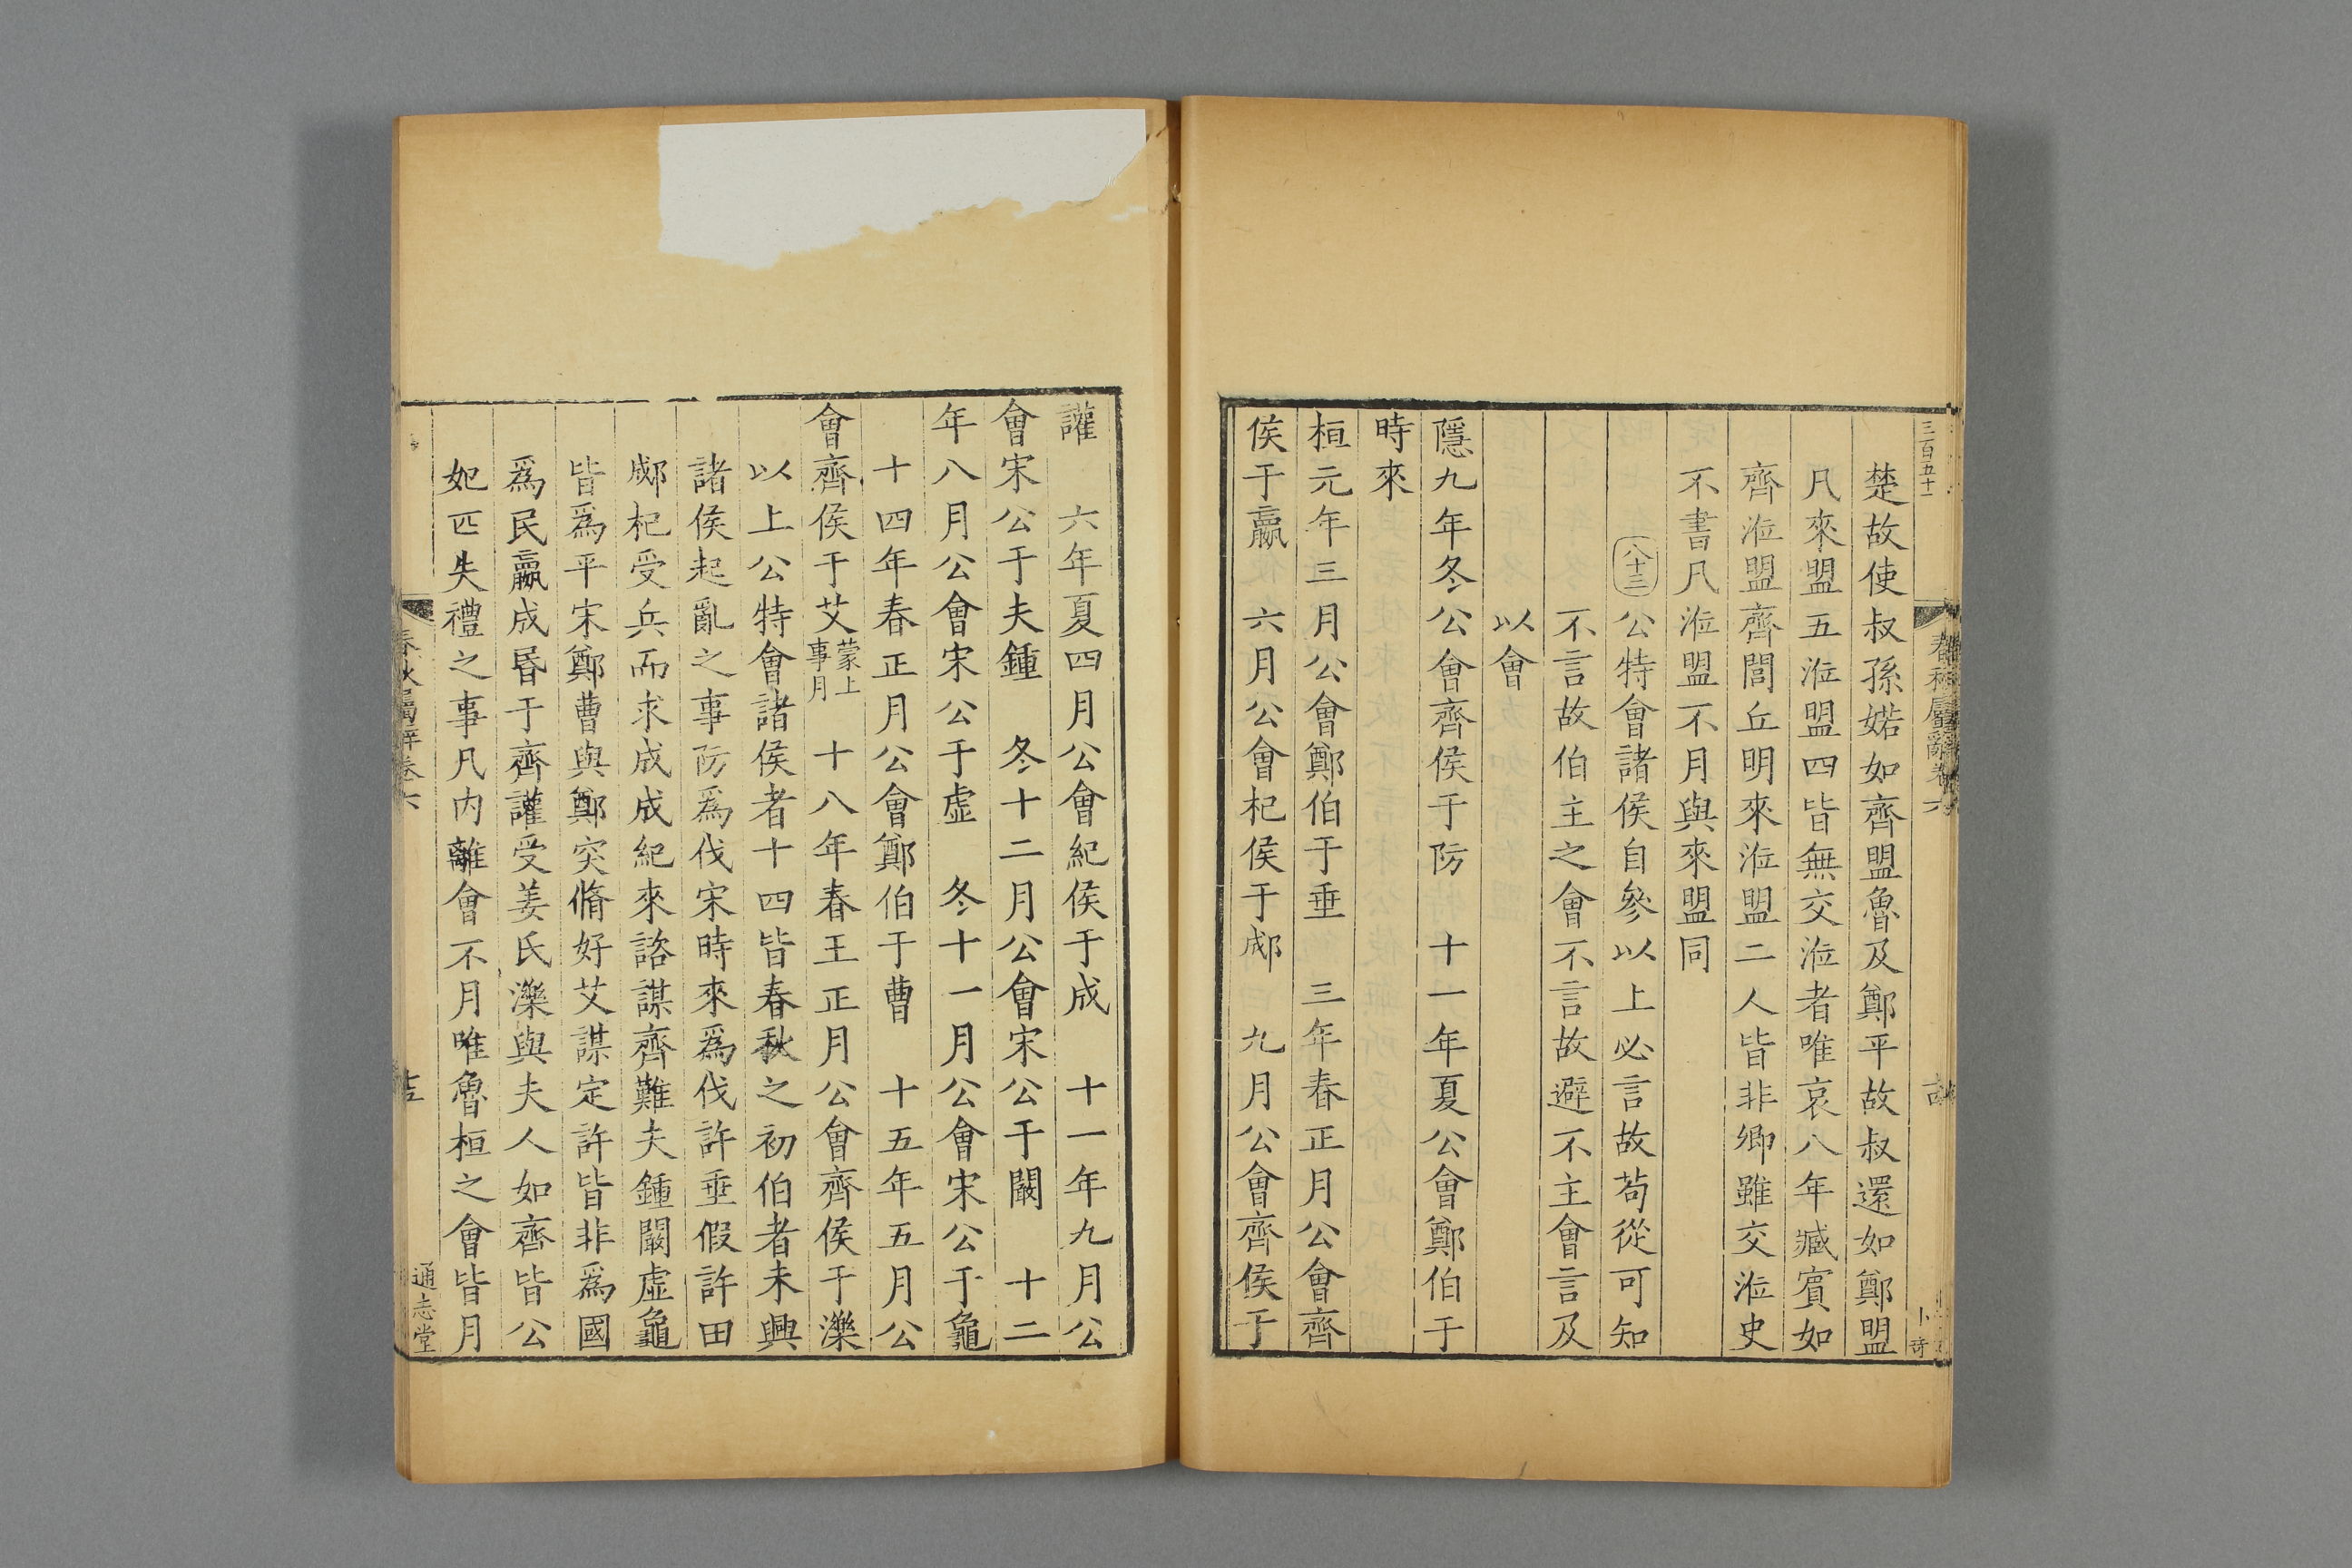 三百五十一
春秋屬辭卷六
言
卜奇
楚故使叔孫婼如齊盟魯及鄭平故叔還如鄭盟
凡來盟五涖盟四皆無交涖者唯哀八年臧賓如
齊涖盟齊閭丘明來涖盟二人皆非卿雖交涖史
不書凡涖盟不月與來盟同
八十三 公特會諸侯自參以上必言故苟從可知
不言故伯主之會不言故避不主會言及
以會
隱九年冬公會齊侯于防 十一年夏公會鄭伯于
時來
桓元年三月公會鄭伯于垂 三年春正月公會齊
侯于嬴 六月公會杞侯于郕 九月公會齊侯于
讙 六年夏四月公會紀侯于成 十一年九月公
會宋公于夫鍾 冬十二月公會宋公于闞 十二
年八月公會宋公于虛 冬十一月公會宋公于龜
十四年春正月公會鄭伯于曹 十五年五月公
會齊侯于艾蒙上事月 十八年春王正月公會齊侯于濼
以上公特會諸侯者十四皆春秋之初伯者未興
諸侯起亂之事防爲伐宋時來爲伐許垂假許田
郕杞受兵而求成成紀來諮謀齊難夫鍾闞虛龜
皆爲平宋鄭曹與鄭突脩好艾謀定許皆非爲國
爲民嬴成昏于齊讙受姜氏濼與夫人如齊皆公
妃匹失禮之事凡内離會不月唯魯桓之會皆月
春秋屬辭卷六
通志堂